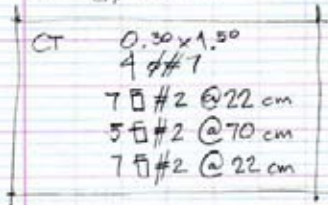 CT 0.30 x 1.50
4 ϕ#7
7 #2 @22 cm
5 #2 @70 cm
7 #2 @ 22 cm